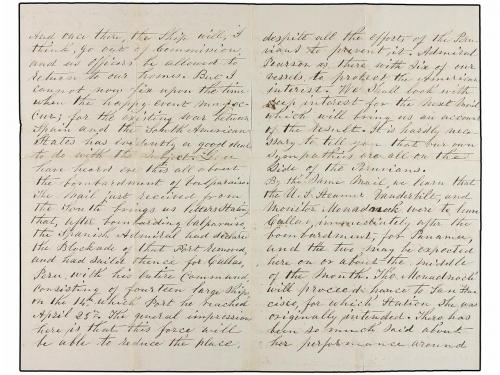 And once there, the Ship will, I
think, go out of Commission,
and us officers be allowed to
return to our homes. But I
cannot now fix upon the time
when the happy event may oc-
cur; for the existing war between
Spain and the South American
States has evidently a good deal
to do with the subject. You
have heard ere this all about
the bombardment of Valparaiso.
The mail just received from
the South brings us
that, after bombarding Valparaiso
the Spanish Admiral had declared
the Blockade of that Port removed,
and had sailed thence for Callao,
Peru, with his entire Command,
Consisting of fourteen large Ships
on the 14th which Port he reached
April 25th. The general impression
here is that this force will
be able to reduce the place,
despite all the efforts of the Peru-
vians to prevent it. Admiral
Pearson is there with Six of our
vessels to protect the American
interest. We Shall look with
deep interest for the next mail
which will bring us an account
of the result. It is hardly nece-
ssary to tell you that our own
Sympathies are all on the
Side of the Peruvians.
By the Same Mail, we learn that
the U.S. Steamer Vanderbilt, and
Monitor Monadnock were to leave
Callao, immediately after the
bombardment, for Panama,
and the two may be expected
here on or about the middle
of the Month. The Monadnock
will proceed hence to San Fran
cisco, for which Station She was
originally intended. There has
been so much Said about
her performance around